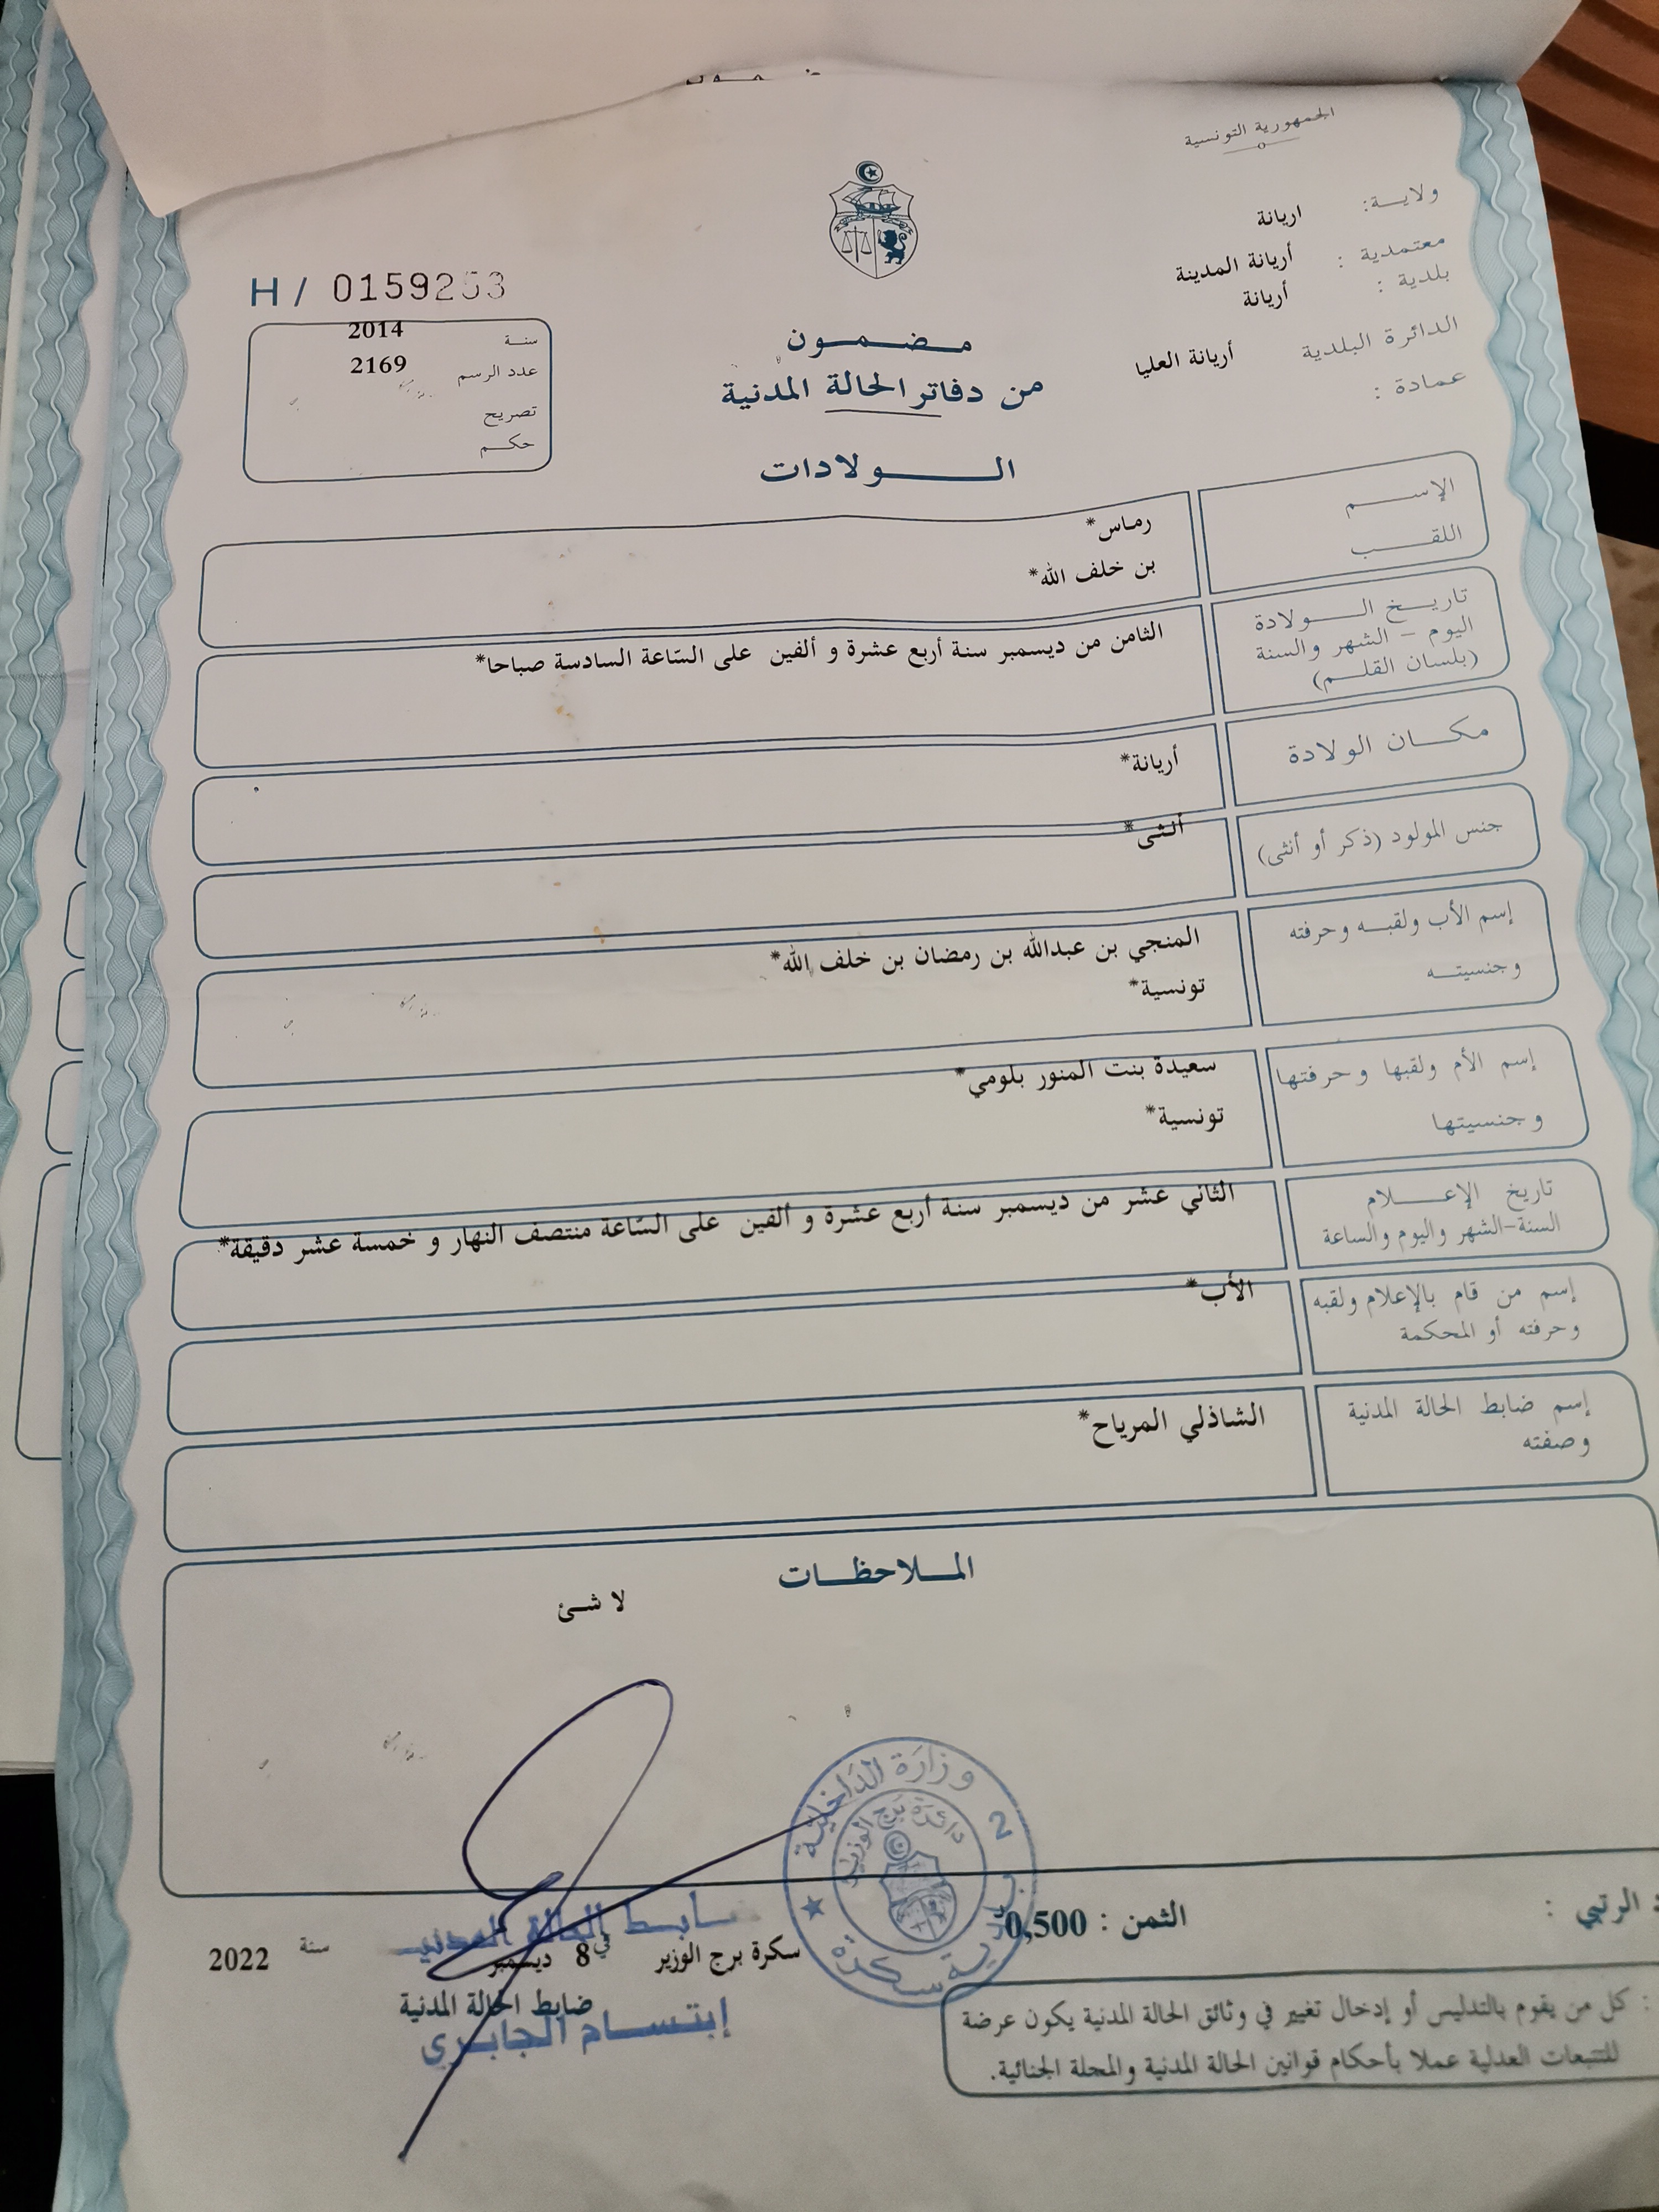 الجمهورية التونسية
ولايـــة: اريانة
معتمدية : أريانة المدينة
بلدية : أريانة
الدائرة البلدية أريانة العليا
عمادة :
H / 0159253
سنة 2014
عدد الرسم 2169
تصريح
حكم
مضمون
من دفاتر الحالة المدنية
الولادات
الإسم رماس*
اللقب بن خلف الله*
تاريخ الولادة
اليوم – الشهر والسنة
(بلسان القلم)
الثامن من ديسمبر سنة أربع عشرة و ألفين على السّاعة السادسة صباحا*
مكان الولادة أريانة*
جنس المولود (ذكر أو أنثى) أنثى*
إسم الأب ولقبه وحرفته المنجي بن عبدالله بن رمضان بن خلف الله*
وجنسيته تونسية*
إسم الأم ولقبها وحرفتها سعيدة بنت المنور بلومي*
وجنسيتها تونسية*
تاريخ الإعلام
السنة-الشهر واليوم والساعة
الثاني عشر من ديسمبر سنة أربع عشرة و ألفين على السّاعة منتصف النهار و خمسة عشر دقيقة*
إسم من قام بالإعلام ولقبه
وحرفته أو المحكمة
الأب*
إسم ضابط الحالة المدنية
وصفته
الشاذلي المرياح*
الملاحظات
لا شئ
وزارة الداخلية
2
دائرة برج الوزير
بلدية سكرة
الرتبي :
الثمن : 0,500
ضابط الحالة المدنية
سكرة برج الوزير في 8 ديسمبر سنة 2022
ضابط الحالة المدنية
إبتسام الجابري
: كل من يقوم بالتدليس أو إدخال تغيير في وثائق الحالة المدنية يكون عرضة
للتتبعات العدلية عملا بأحكام قوانين الحالة المدنية والمجلة الجنائية.